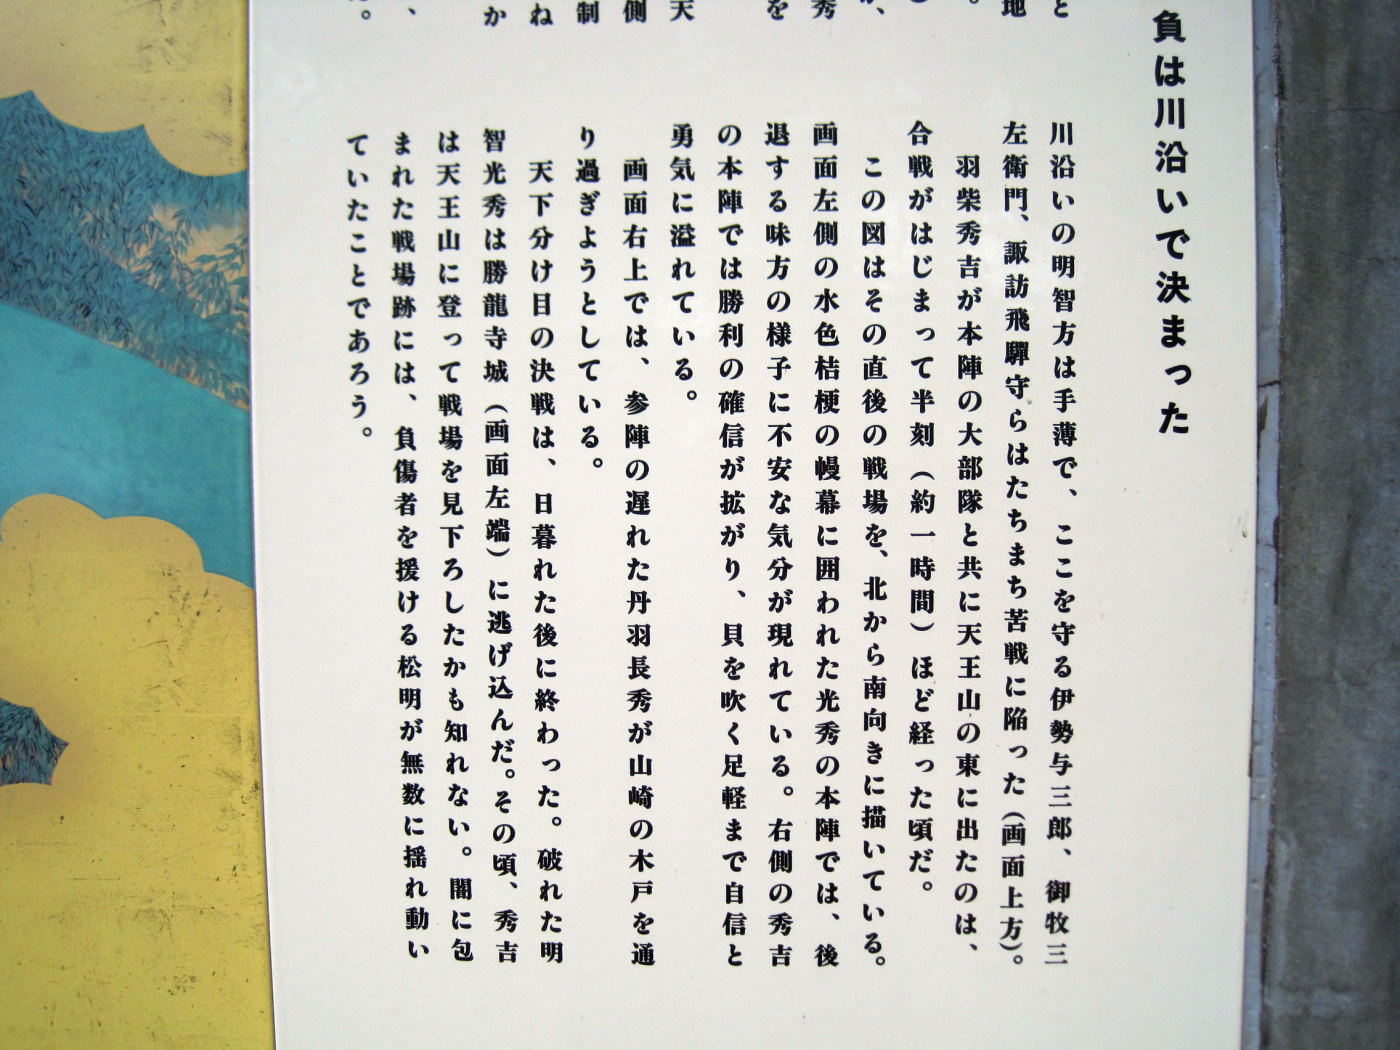 負は川沿いで決まった
川沿いの明智方は手薄で、ここを守る伊勢与三郎、御牧三
左衛門、諏訪飛驒守らはたちまち苦戦に陥った（画面上方）。
羽柴秀吉が本陣の大部隊と共に天王山の東に出たのは、
合戦がはじまって半刻（約一時間）ほど経った頃だ。
この図はその直後の戦場を、北から南向きに描いている。
画面左側の水色桔梗の幔幕に囲われた光秀の本陣では、後
退する味方の様子に不安な気分が現れている。右側の秀吉
の本陣では勝利の確信が拡がり、貝を吹く足軽まで自信と
勇気に溢れている。
画面右上では、参陣の遅れた丹羽長秀が山崎の木戸を通
り過ぎようとしている。
天下分け目の決戦は、日暮れた後に終わった。破れた明
智光秀は勝龍寺城（画面左端）に逃げ込んだ。その頃、秀吉
は天王山に登って戦場を見下ろしたかも知れない。闇に包
まれた戦場跡には、負傷者を援ける松明が無数に揺れ動い
ていたことであろう。